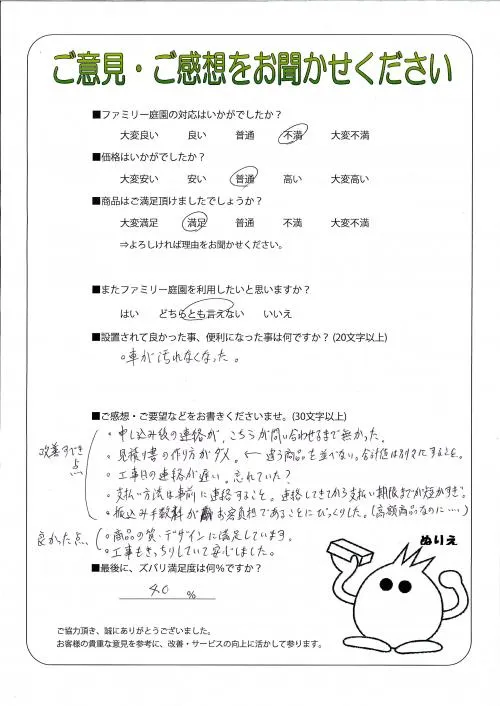 ご意見・ご感想をお聞かせください
■ファミリー庭園の対応はいかがでしたか？
大変良い 良い 普通 不満 大変不満
■価格はいかがでしたか？
大変安い 安い 普通 高い 大変高い
■商品はご満足頂けましたでしょうか？
大変満足 満足 普通 不満 大変不満
⇒よろしければ理由をお聞かせください。
■またファミリー庭園を利用したいと思いますか？
はい どちらとも言えない いいえ
■設置されて良かった事、便利になった事は何ですか？(20文字以上)
○車が汚れなくなった。
■ご感想・ご要望などをお書きくださいませ。(30文字以上)
改善すべき点
・申し込み後の連絡が、こちらが問い合わせるまで無かった。
・見積り書の作り方がダメ。← 違う商品を並べない。合計値は別々にすること。
・工事日の連絡が遅い。忘れていた？
・支払い方法は事前に連絡すること。連絡してきてから支払い期限までが短かすぎ。
・振込み手数料がお客負担であることにびっくりした。(高額商品なのに……)
良かった点
・商品の質・デザインに満足しています。
・工事もきっちりしていて安心しました。
■最後に、ズバリ満足度は何％ですか？
40 ％
ぬりえ
ご協力頂き、誠にありがとうございました。
お客様の貴重な意見を参考に、改善・サービスの向上に活かして参ります。